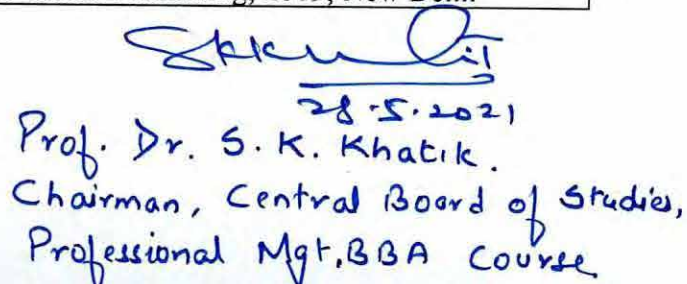 New Delhi
28.5.2021
Prof. Dr. S. K. Khatik.
Chairman, Central Board of Studies,
Professional Mgt, BBA Course